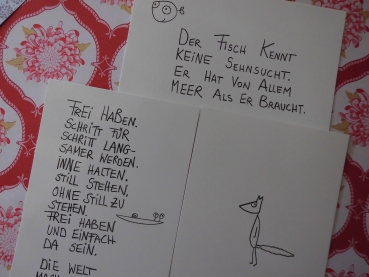 DER FISCH KENNT
KEINE SEHNSUCHT.
ER HAT VON ALLEM
MEER ALS ER BRAUCHT.
FREI HABEN.
SCHRITT FÜR
SCHRITT LANG-
SAMER WERDEN.
INNE HALTEN,
STILL STEHEN,
OHNE STILL ZU
STEHEN.
FREI HABEN
UND EINFACH
DA SEIN.
DIE WELT